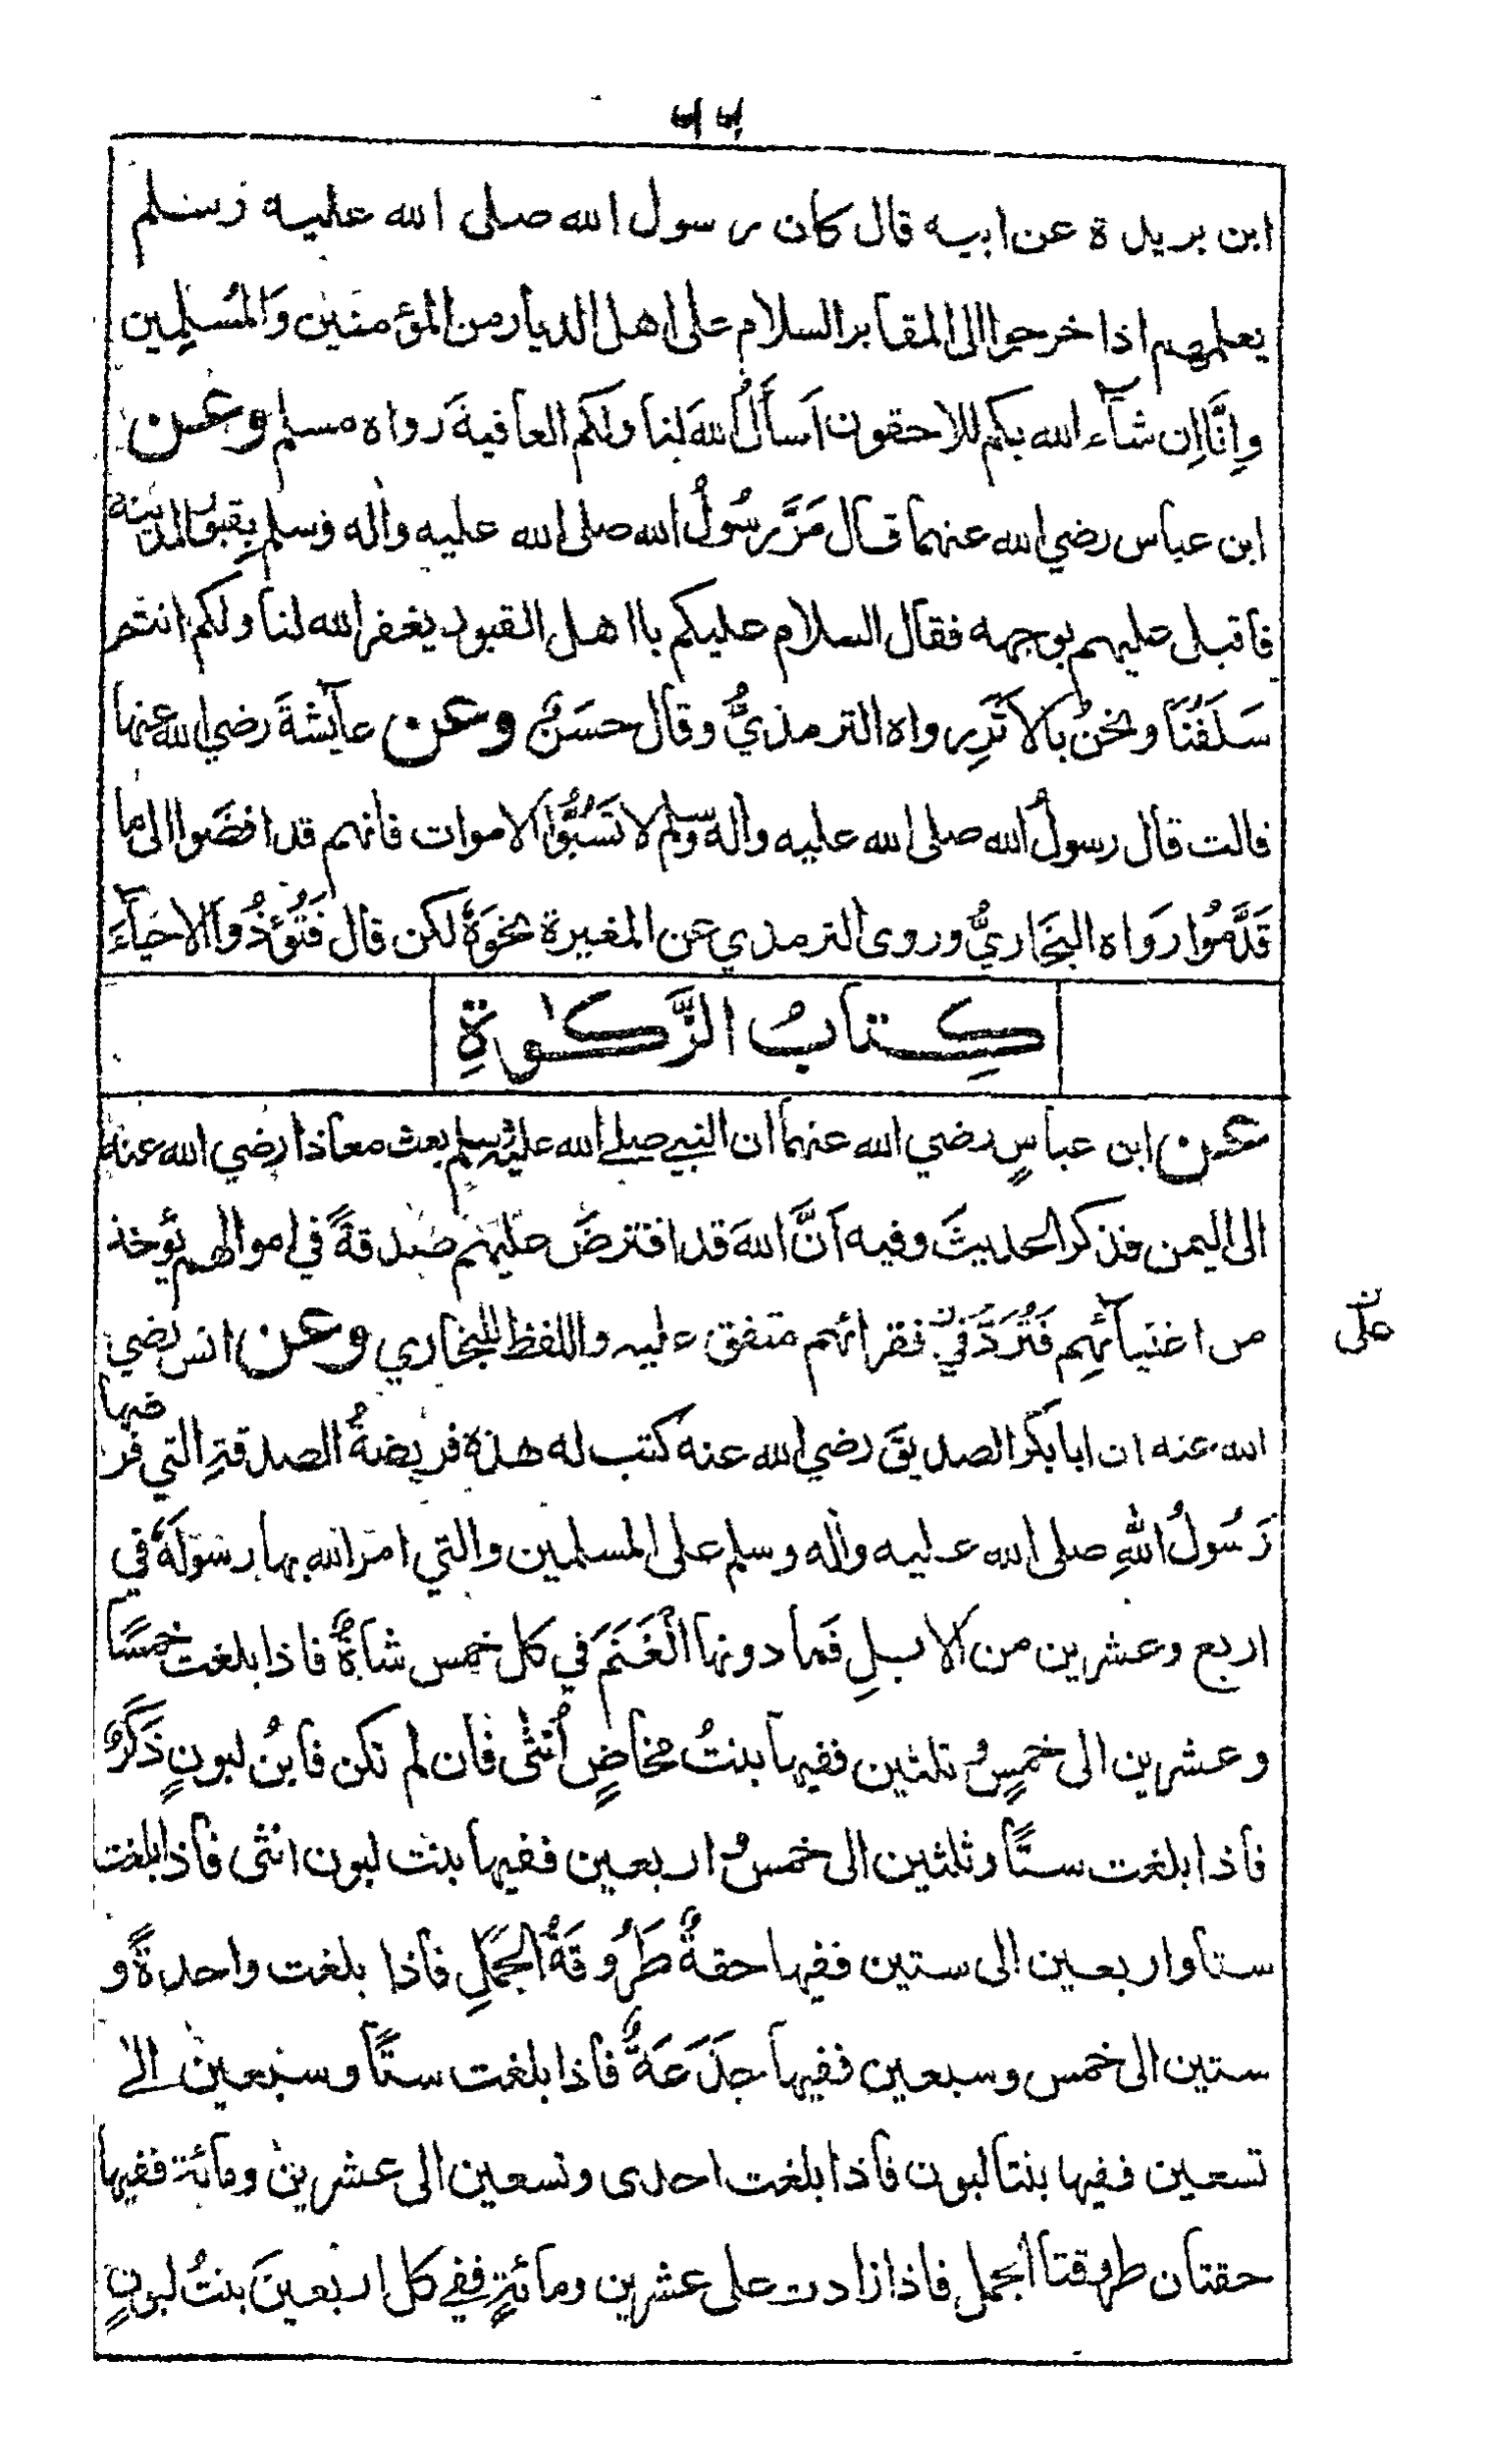 ابن بريدة عن ابيه قال كان رسول الله صلى الله عليه وسلم
يعلمهم اذا خرجوا الى المقابر السلام على اهل الديار من المؤمنين وَالمُسلِمِين
وِانَّا اِن شآء الله بكم للاحقون اَسأَلُ اللهَ لنا ولكم العافيةَ رواه مسلم وعن
ابن عباس رضي الله عنهما قال مَرَّ رسُولُ الله صلى الله عليه واٰله وسلم بِقبور المدينة
فاقبل عليهم بوجهه فقال السلام عليكم يا اهل القبور يغفر الله لنا ولكم انتم
سَلَفُنَا ونحنُ بالاَثَرِ رواه الترمذيُّ وقال حسَنٌ وعن عآيشةَ رضي الله عنها
قالت قال رسولُ الله صلى الله عليه واٰله وسلم لا تَسُبُّوا الاموات فانهم قد افضَوا الى ما
قَدَّمُوا رَواه البخَاريُّ وروى الترمذي عن المغيرة نحوَهٗ لكن قال فَتُؤذُوا الاحيآءَ
كِتابُ الزَّكٰوةِ
عن ابن عباسٍ رضي الله عنهما ان النبي صلے الله عليه وسلم بعث معاذا رضي الله عنه
الى اليمن فذكر الحديثَ وفيه اَنَّ اللهَ قد افترضَ عليهم صدقةً في اموالهم تؤخذ
من اغنيآئِهِم فَتُرَدُّ فيٰ فقرائهم متفق عليه واللفظ للبخاري وعن انس رضي
علىٰ
الله عنه ان ابا بكر الصديقَ رضي الله عنه كتب له هذه فريضةُ الصدقةِ التي فرضها
رَسُولُ اللهِ صلى الله عليه واٰله وسلم على المسلمين والتي امر الله بها رسُولَهٗ في
اربع وعشرين من الابلِ فَما دونها الْغَنَمَ في كل خمس شاةٌ فاذا بلغت خمسًا
وعشرين الى خمسٍ و ثلثين ففيها بنتُ مخاضٍ اُنثٰى فان لم تكن فابنُ لبونٍ ذَكَرٌ
فاذا بلغت ستًّا وثلثين الى خمس و اربعين ففيها بنت لبون انثى فاذا بلغت
ستا واربعين الى ستين ففيها حقةٌ طَرُوقَةُ الجَمَلِ فاذا بلغت واحدةً و
ستين الى خمس وسبعين ففيها جَذَعَةٌ فاذا بلغت ستًّا وسبعين الےٰ
تسعين ففيها بنتا لبون فاذا بلغت احدى وتسعين الى عشرين ومائة ففيها
حقتان طروقتا الجمل فاذا زادت على عشرين ومائةٍ ففي كل اربعينَ بنتُ لبونٍ